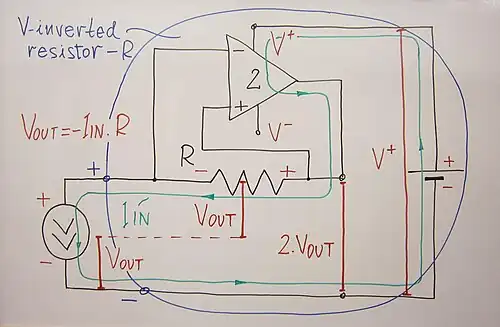 V-inverted
resistor -R
V+
-
2
+
V-
VOUT = -IIN.R
R
-
+
V+
+
-
+
+
-
IIN
VOUT
VOUT
2.VOUT
-